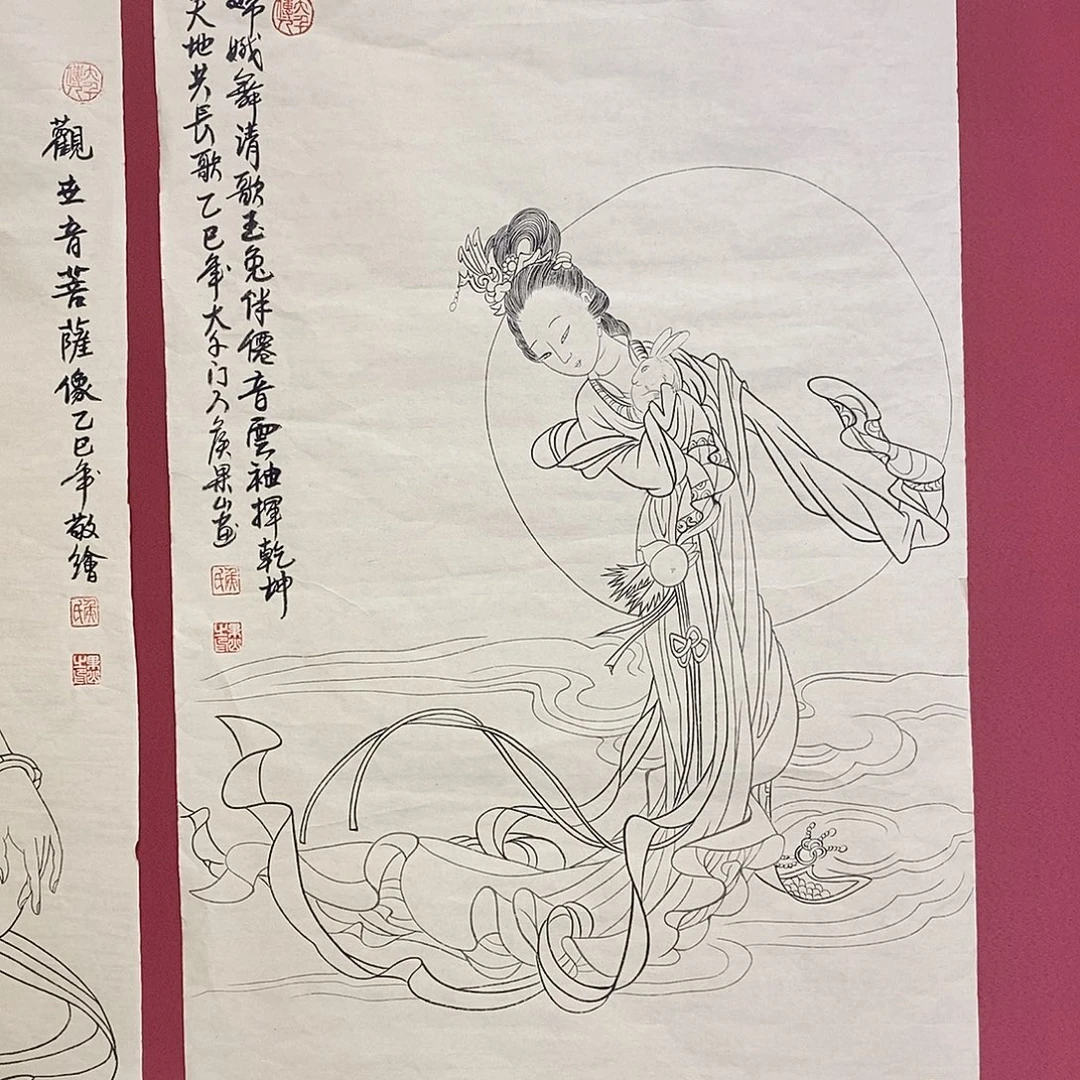 嫦娥舞清歌玉兔伴僊音雲袖揮乾坤
天地共長歌乙巳年大千门人侯果山画
侯氏
觀世音菩薩像乙巳年敬繪
侯氏